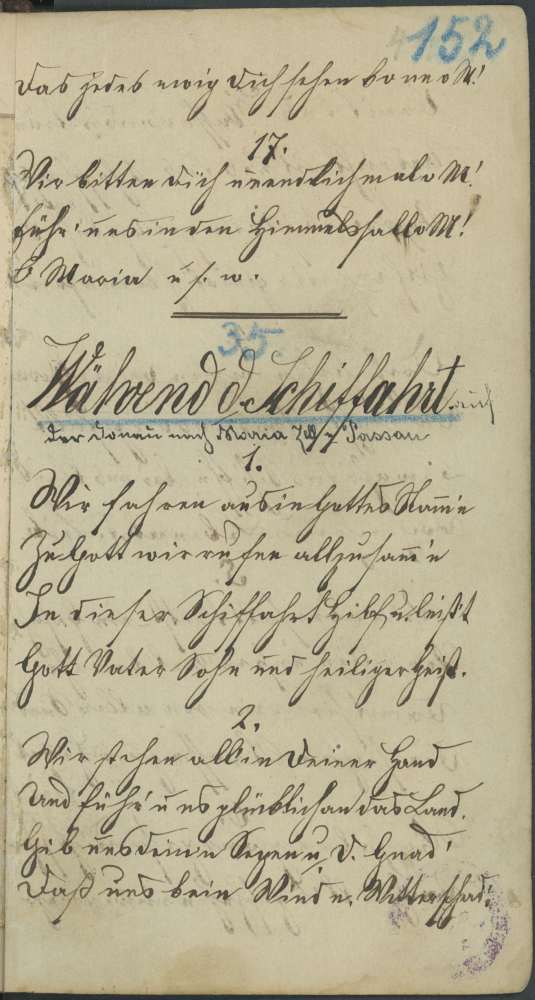 152
Das jedes ewig Dich sehen kann o M!
17.
Wir bitten Dich unendlichmal o M!
Führ' uns in den Himmelssaal o M!
O Maria u. s. w.
35
Während d. Schiffahrt auf
der Donau nach Maria Passau
1.
Wir fahren aus in Gottes Nam̅'n
Zu Gott wir rufen all zusam̅'n
In dieser Schiffahrt Hilf u. leist't
Gott Vater Sohn und heiliger Geist.
2.
Wir stehen all in Deiner Hand
Und führ' uns glücklich an das Land.
Gib uns dein'n Segen u. D. Gnad'
Daß uns kein Wind u. Wetter schad'.